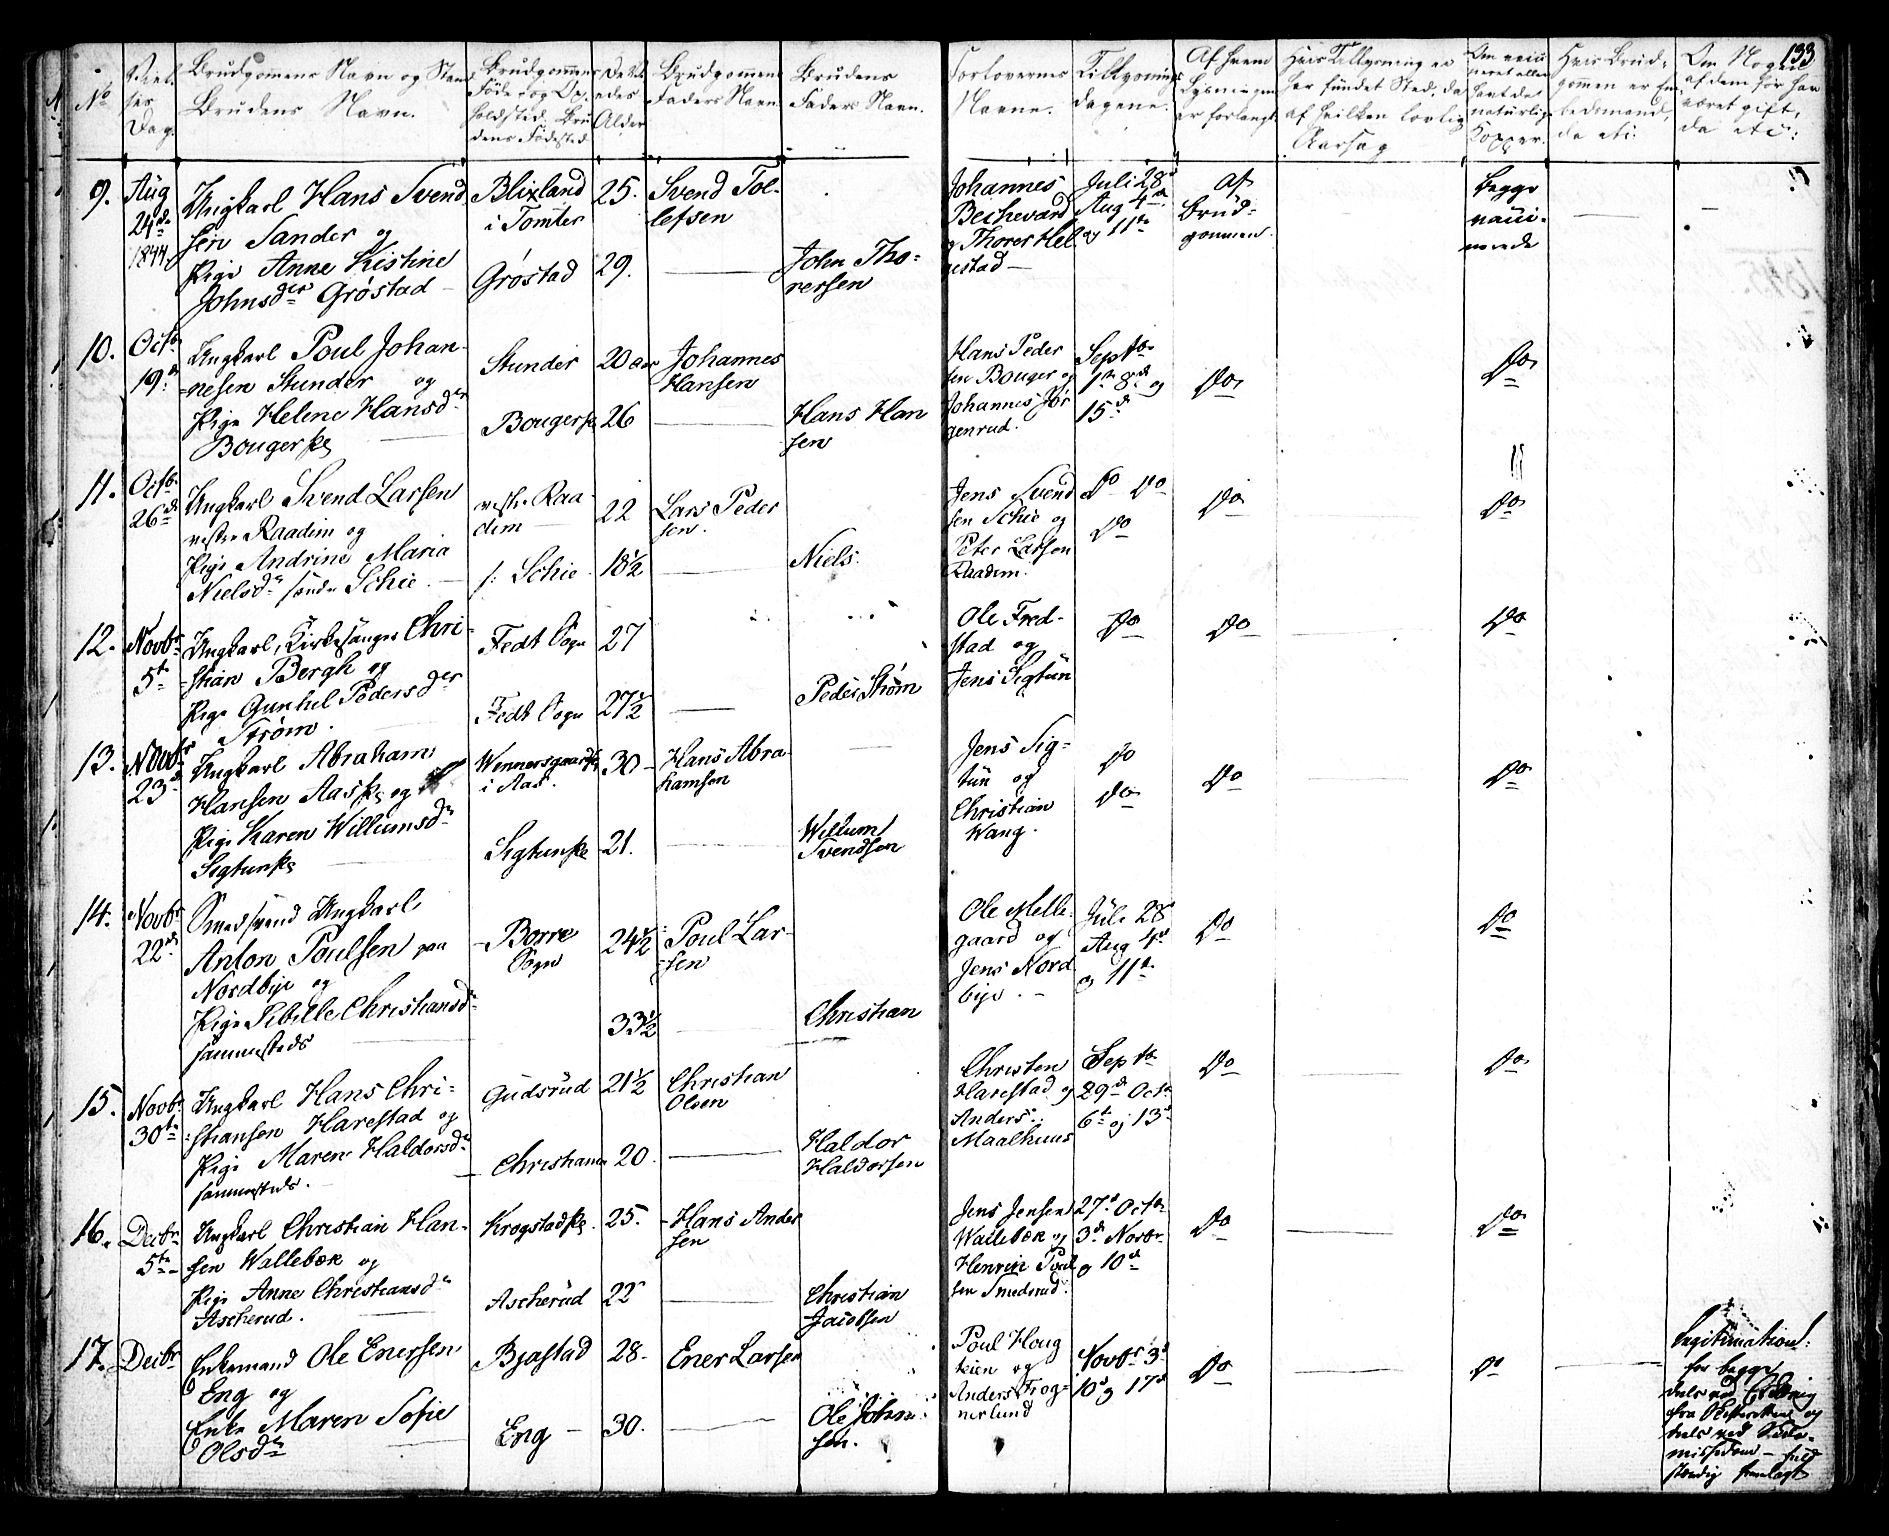 133
No
Viel-
ses
Dag.
Brudgommens Navn og Stand
Brudens Navn.
Brudgommens
Føde- og Op-
holdsted. Bru
dens Fødested
Alder
Brudgommens
Faders Navn.
Brudens
Faders Navn.
Forlovernes
Navne.
Tillysnings
dagene.
Af hvem
Lysningen
er forlangt.
Hvis Tillysning ei
har fundet Sted, da
af hvilken lovlig
Aarsag
naturlige
Kopper.
Hvis Brud-
gommen er Em
bedsmand,
da etc:
Om Nogen
af dem før har
været gift,
da etc:
9.
Aug
24de
1844
Ungkarl Hans Svend
sen Sander og
Pige Anne Kistine
Johnsder Grøstad
Blixland
i Tomter
Grøstad
25.
29.
Svend Tol-
lefsen
John Tho-
rersen
Johannes
Bechevard
og Thorer Hel
gestad
Juli 28
Aug 4de
og 11te
Af
Brud-
gommen.
Begge
vacci-
nerede
10.
Octb.
19.
Ungkarl Poul Johan-
nesen Stunder og
Pige Helene Hansdr
Bougerske
Stunder
Bougerske
20 aar
26
Johannes
Hansen
Hans Han
sen
Hans Peder
sen Bouger og
Johannes Jør
genrud.
Septbr
1te 8de og
15de
Do
Do
11.
Octb.
26de
Ungkarl Svend Larsen
vestre Raadim og
Pige Andrine Maria
Nielsdr søndre Schie.
vestre Raa-
dim
s: Schie
22
18½
Lars Peder
sen.
Niels.
Jens Svend
sen Schie og
Peter Larsen
Raadim.
Do Do
Do
Do
Do
12.
Novbr
5te
Ungkarl, Kirkesanger Chri-
stian Bergh og
Pige Gunhil Pedersder
Strøm.
Fedt Sogn
Fedt Sogn
27
27½
Peder Strøm
Ole Fred-
stad og
Jens Sigtun
Do
Do
Do
13.
Novbr
23de
Ungkarl Abraham
Hansen Aaske og
Pige Karen Willumsdr
Sigtunske
Wennersgaardsk
i Aas.
Sigtunske
30
21.
Hans Abra
hamsen
Willum
Svendsen
Jens Sig-
tun og
Christian
Wang.
Do
Do
Do
Do
14.
Novbr
22de
Smedsvend Ungkarl
Anton Poulsen paa
Nordbye og
Pige Sibille Christiansdr
sammesteds
Borre
Sogn
24½
33½
Poul Lar-
sen
Christian
Ole Melle-
gaard og
Jens Nord
bye.
Juli 28
Aug 4de
og 11te
Do
Do
15.
Novbr.
30te
Ungkarl Hans Chri-
stiansen Harestad og
Pige Maren Haldorsdr
sammesteds.
Gudsrud
Christiania
21½
20
Christian
Olsen
Haldor
Haldorsen
Christen
Harestad og
Anders
Maalhuus
Septbr
29de Octb
6te og 13de
Do
Do
16.
Decbr
5te
Ungkarl Christian Han-
sen Wallebæk og
Pige Anne Christiansdr
Ascherud.
Krogstadske
Ascherud
25.
22
Hans Ander
sen
Christian
Jacobsen
Jens Jensen
Wallebæk og
Henrik Poul
sen Smedsrud.
27de Octbr
3de Novbr
og 10de
Do
Do
17.
Decbr
Enkemand Ole Enersen
Eng og
Enke Maren Sofie
Olsdr
Bjastad
Eng
28.
30.
Ener Larsen
Ole John-
sen.
Poul Houg
teien og
Anders Frog-
nerlund
Novbr 3de
10de og 17de
Do
Do
Legitimation
for begge
deels ved
fra Skifteretten og
deels ved
fuld
stændig fremlagt